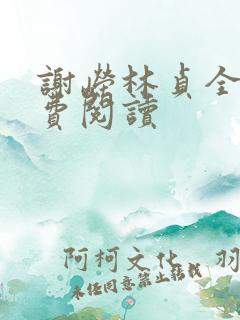 謝嶸林貞全
費閱讀
阿柯文化 羽
未經同意禁止轉載